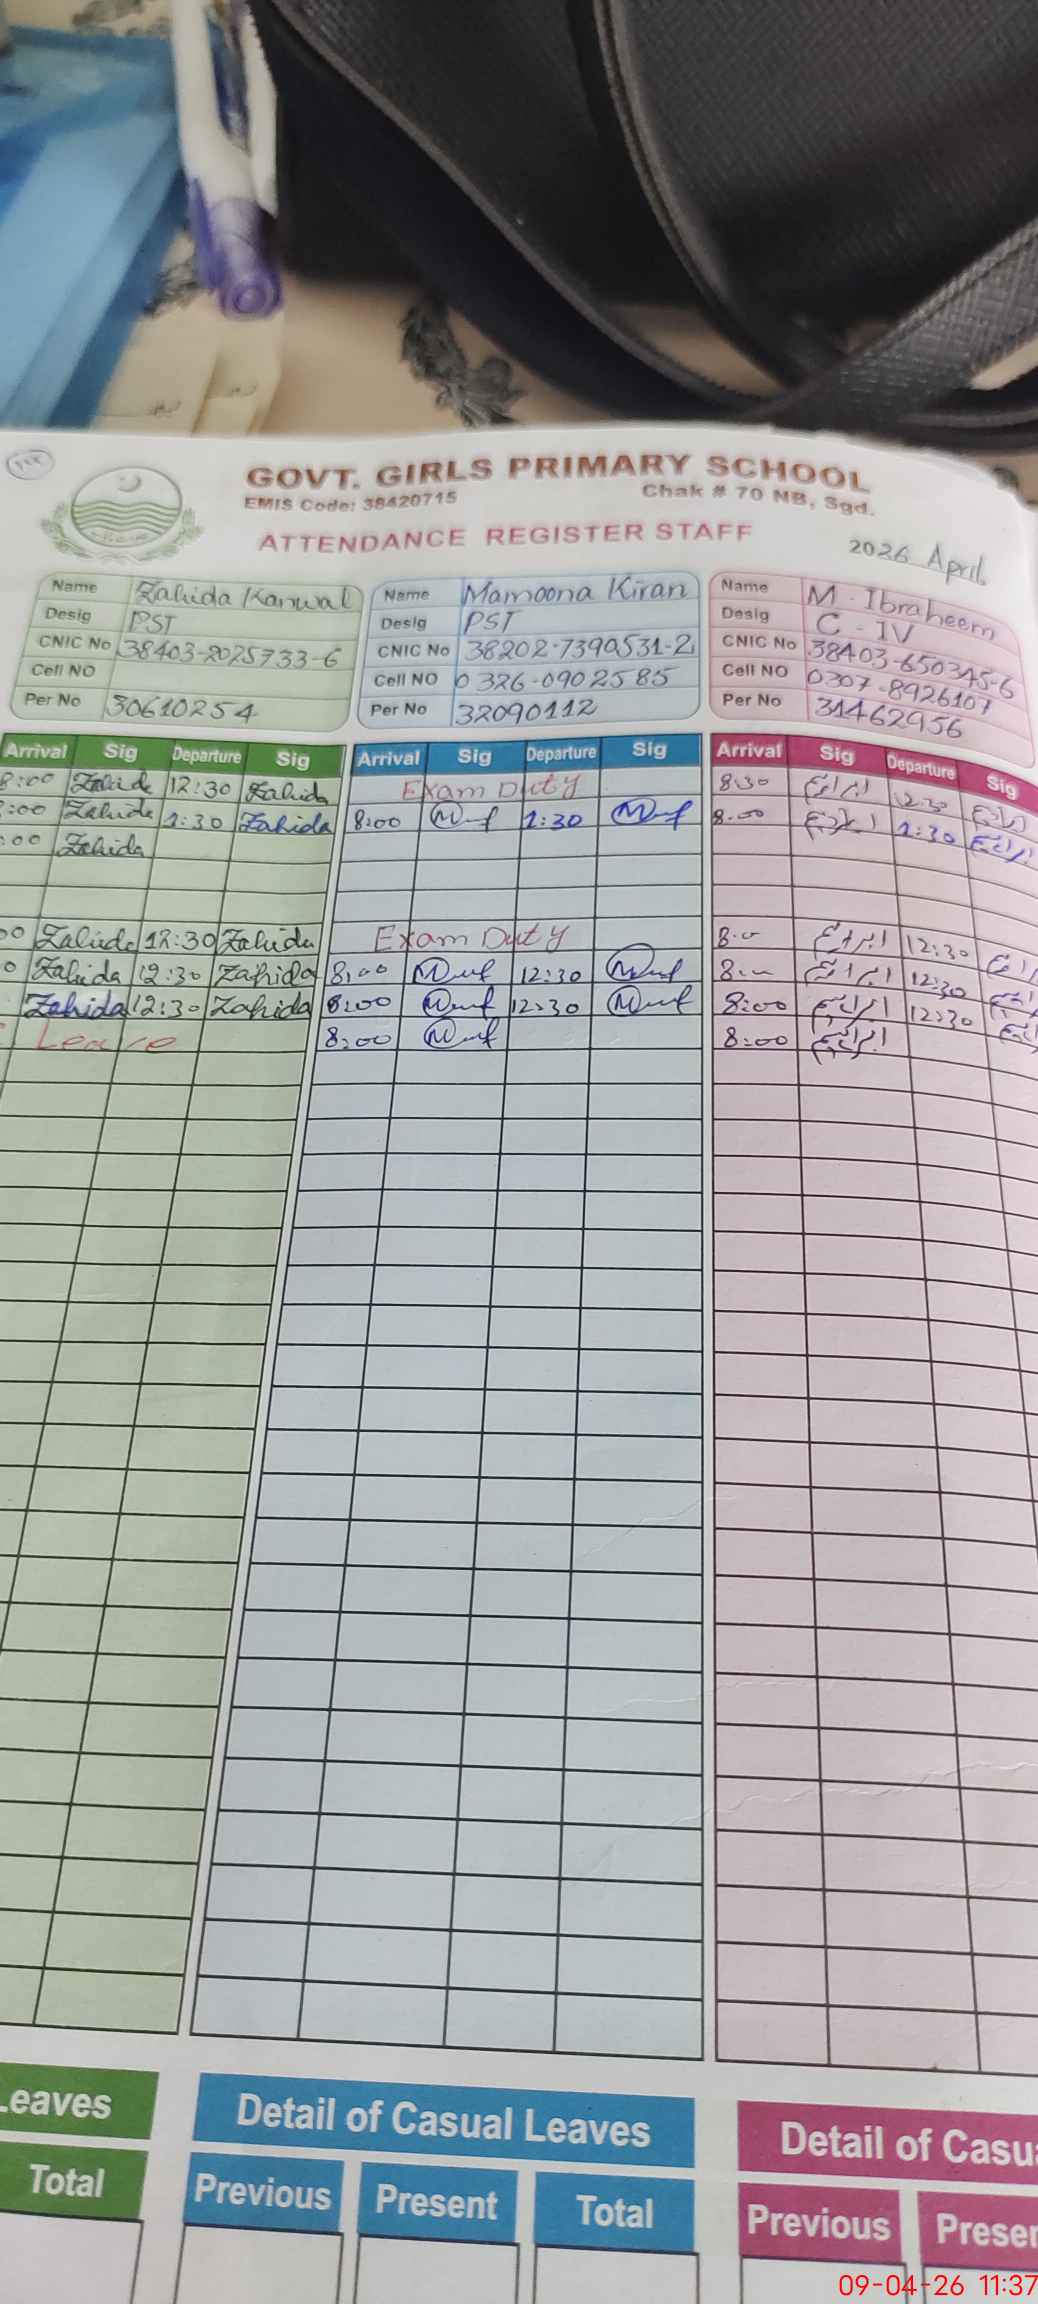 GOVT. GIRLS PRIMARY SCHOOL
EMIS Code: 38420715 Chak # 70 NB, Sgd.
ATTENDANCE REGISTER STAFF
2026 April
Name Zahida Kanwal
Desig PST
CNIC No 38403-2025733-6
Cell NO
Per No 30610254
Name Mamoona Kiran
Desig PST
CNIC No 38202-7390531-2
Cell NO 0326-0902585
Per No 32090112
Name M. Ibraheem
Desig C-IV
CNIC No 38403-650345-6
Cell NO 0307-8926107
Per No 31462956
Arrival Sig Departure Sig Arrival Sig Departure Sig Arrival Sig Departure Sig
8:00 Zahida 12:30 Zahida Exam Duty 8:30 ابراہیم 12:30 ابراہیم
:00 Zahida 1:30 Zahida 8:00 1:30 8:00 ابراہیم 1:30 ابراہیم
:00 Zahida
00 Zahida 12:30 Zahida Exam Duty 8:0 ابراہیم 12:30
0 Zahida 12:30 Zahida 8:00 12:30 ابراہیم 12:30
Zahida 12:30 Zahida 8:00 12:30 8:00 ابراہیم 12:30
Leave 8:00 8:00 ابراہیم
Leaves Detail of Casual Leaves Detail of Casu
Total Previous Present Total Previous Presen
09-04-26 11:37